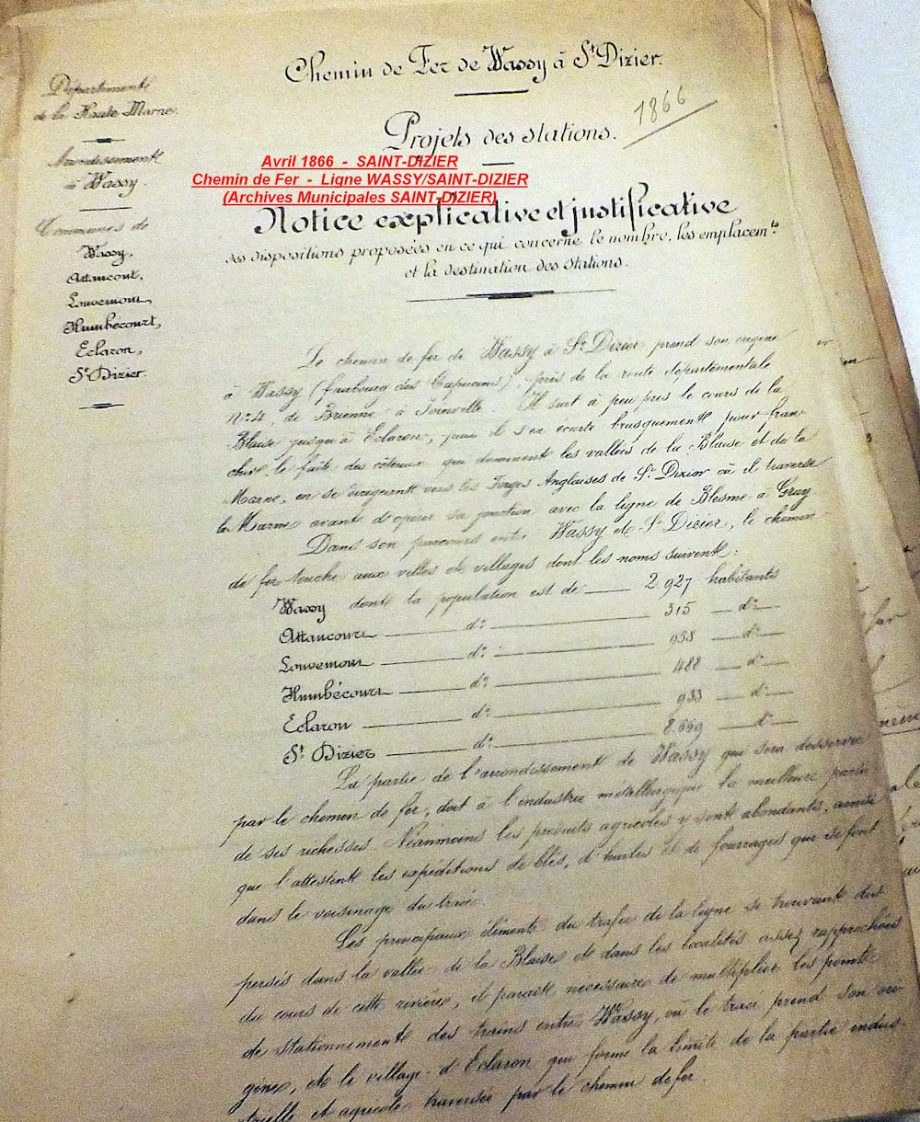 Chemin de Fer de Wassy à St Dizier.
1866
Département
de la Haute Marne.
Arrondissement
à Wassy.
Communes de
Wassy,
Attancourt,
Louvemont,
Humbécourt,
Eclaron,
St Dizier.
Projets des stations.
Avril 1866 - SAINT-DIZIER
Chemin de Fer - Ligne WASSY/SAINT-DIZIER
(Archives Municipales SAINT-DIZIER)
Notice explicative et justificative
des dispositions proposées en ce qui concerne le nombre, les emplacemts
et la destination des stations.
Le chemin de fer de Wassy à St Dizier prend son origine
à Wassy (faubourg des Capucins), près de la route départementale
No 4, de Brienne à Joinville. Il suit à peu près le cours de la
Blaise jusqu'à Eclaron, puis il s'en écarte brusquement pour fran-
chir le faîte des côteaux qui dominent les vallées de la Blaise et de la
Marne, en se dirigeant vers les Forges Anglaises de St Dizier où il traverse
la Marne avant d'opérer sa jonction avec la ligne de Blesme à Gray.
Dans son parcours entre Wassy et St Dizier, le chemin
de fer touche aux villes et villages dont les noms suivent:
Wassy dont la population est de 2.927 habitants
Attancourt do 315 do
Louvemont do 938 do
Humbécourt do 488 do
Eclaron do 933 do
St Dizier do 8.669 do
La partie de l'arrondissement de Wassy que sera desservie
par le chemin de fer, doit à l'industrie métallurgique la meilleure partie
de ses richesses. Néanmoins les produits agricoles y sont abondants, ainsi
que l'attestent les expéditions de blés, d'huiles et de fourrages qui se font
dans le voisinage du tracé.
Les principaux éléments du trafic de la ligne se trouvant dis-
persés dans la vallée de la Blaise et dans les localités assez rapprochées
du cours de cette rivière, il paraît nécessaire de multiplier les points
de stationnement des trains entre Wassy, où le tracé prend son ori-
gine, et le village d'Eclaron qui forme la limite de la partie indus-
trielle et agricole traversée par le chemin de fer